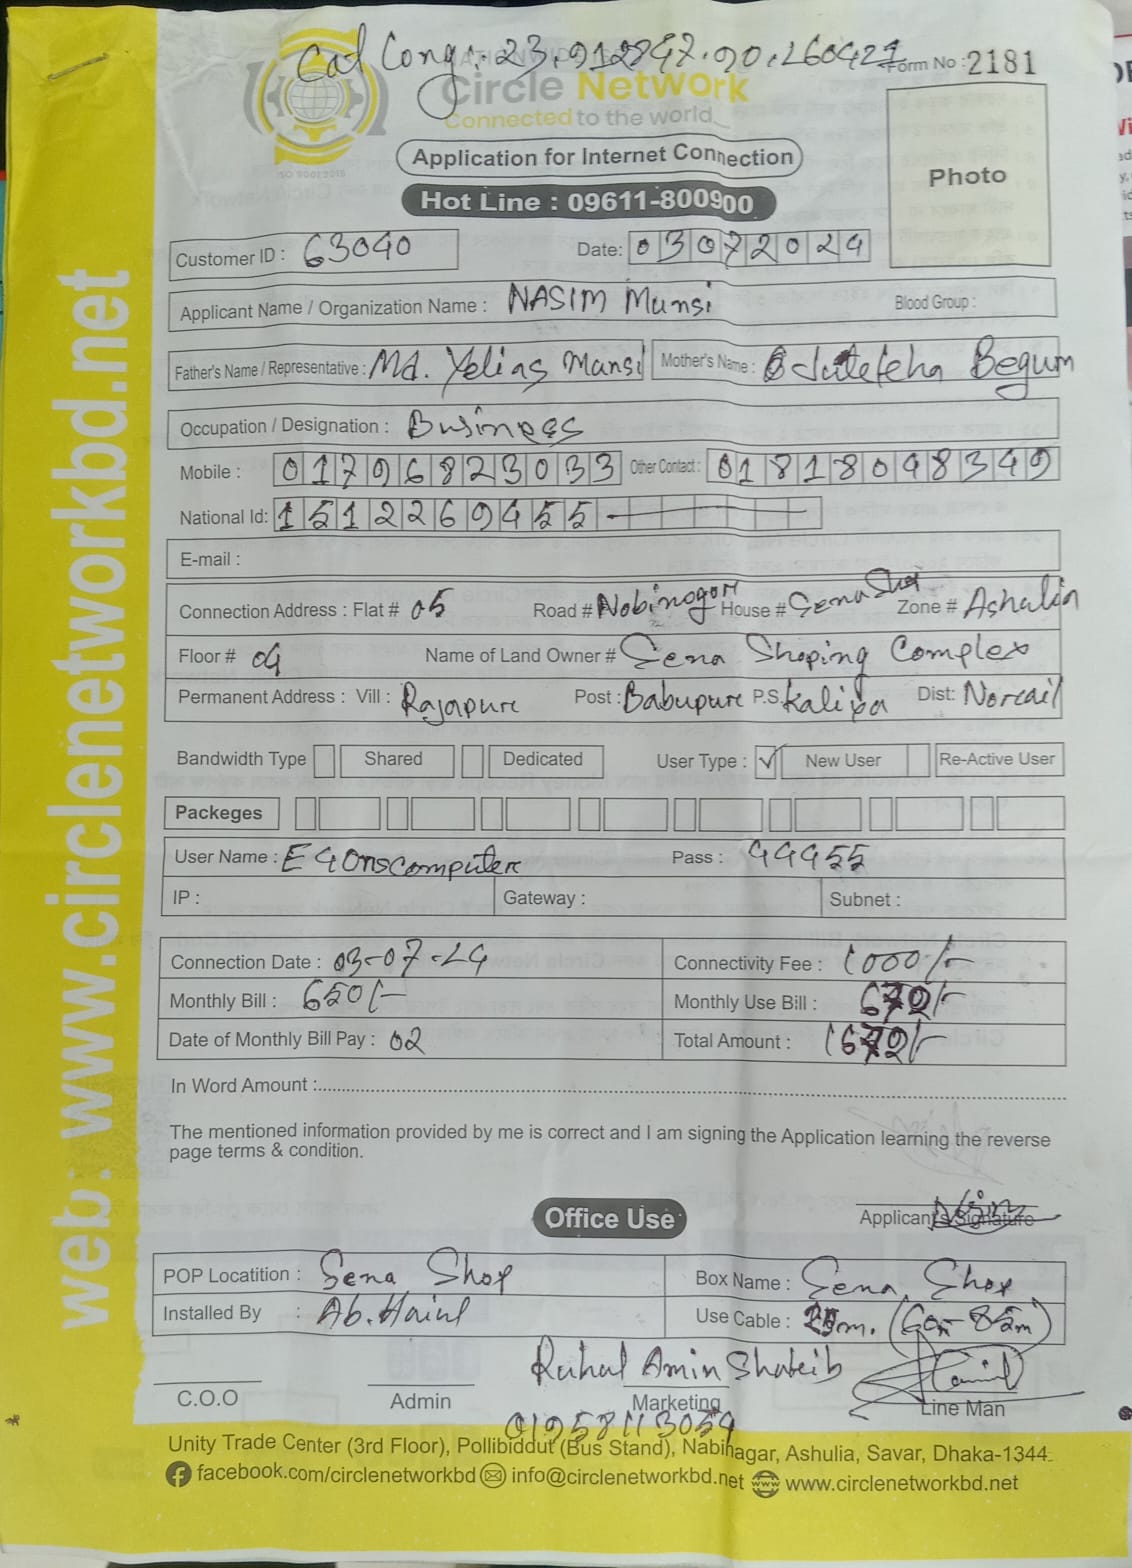 Cad Cong: 23.912897.90.260427
Form No : 2181
Circle Network
Connected to the world
ISO 9001:2015
Application for Internet Connection
Photo
Hot Line : 09611-800900
Customer ID : 63040 Date: 03072024
Applicant Name / Organization Name : NASIM Munsi Blood Group :
Father's Name / Representative : Md. Yelias Munsi Mother's Name : Begum
Occupation / Designation : Business
Mobile : 01796823033 Other Contact : 01818098349
National Id: 1512269455
E-mail :
Connection Address : Flat # 05 Road # Nobinogor House # Sena Shop Zone # Ashulia
Floor # 04 Name of Land Owner # Sena Shoping Complex
Permanent Address : Vill : Rajapure Post : Babupure P.S. Kalija Dist: Norcail
Bandwidth Type Shared Dedicated User Type : ✓ New User Re-Active User
Packeges
User Name : E4onscomputer Pass : 44455
IP : Gateway : Subnet :
Connection Date : 03-07-24 Connectivity Fee : 1000/-
Monthly Bill : 650/- Monthly Use Bill : 672/-
Date of Monthly Bill Pay : 02 Total Amount : 1672/-
In Word Amount :
The mentioned information provided by me is correct and I am signing the Application learning the reverse
page terms & condition.
Office Use Applicant's Signature
POP Locatition : Sena Shop Box Name : Sena Shop
Installed By : Ab. Hainl Use Cable : 25m. (60m-85m)
Ruhul Amin Shakib
C.O.O Admin Marketing Line Man
01958113059
Unity Trade Center (3rd Floor), Pollibiddut (Bus Stand), Nabinagar, Ashulia, Savar, Dhaka-1344.
facebook.com/circlenetworkbd info@circlenetworkbd.net www.circlenetworkbd.net
web: www.circlenetworkbd.net